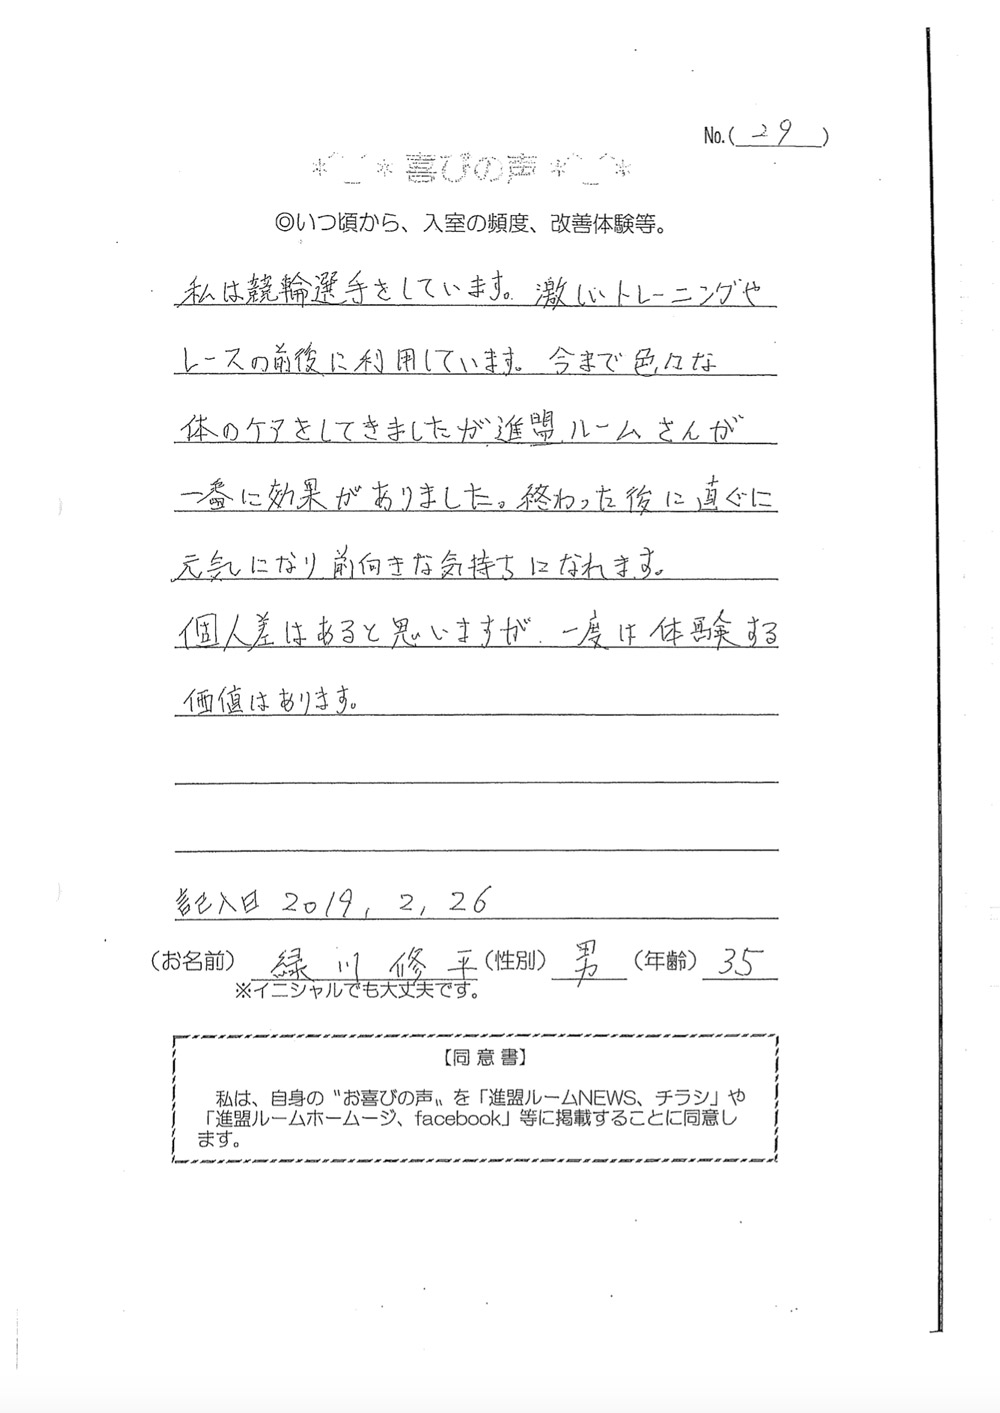 No.( 29 )
*^_^* 喜びの声 *^_^*
◎いつ頃から、入室の頻度、改善体験等。
私は競輪選手をしています。激しいトレーニングや
レースの前後に利用しています。今まで色々な
体のケアをしてきましたが進盟ルームさんが
一番に効果がありました。終わった後に直ぐに
元気になり前向きな気持ちになれます。
個人差はあると思いますが、一度は体験する
価値はあります。
記入日 2019, 2, 26
(お名前) 緑川修平 (性別) 男 (年齢) 35
※イニシャルでも大丈夫です。
【同意書】
私は、自身の〝お喜びの声〟を「進盟ルームNEWS、チラシ」や
「進盟ルームホームージ、facebook」等に掲載することに同意し
ます。